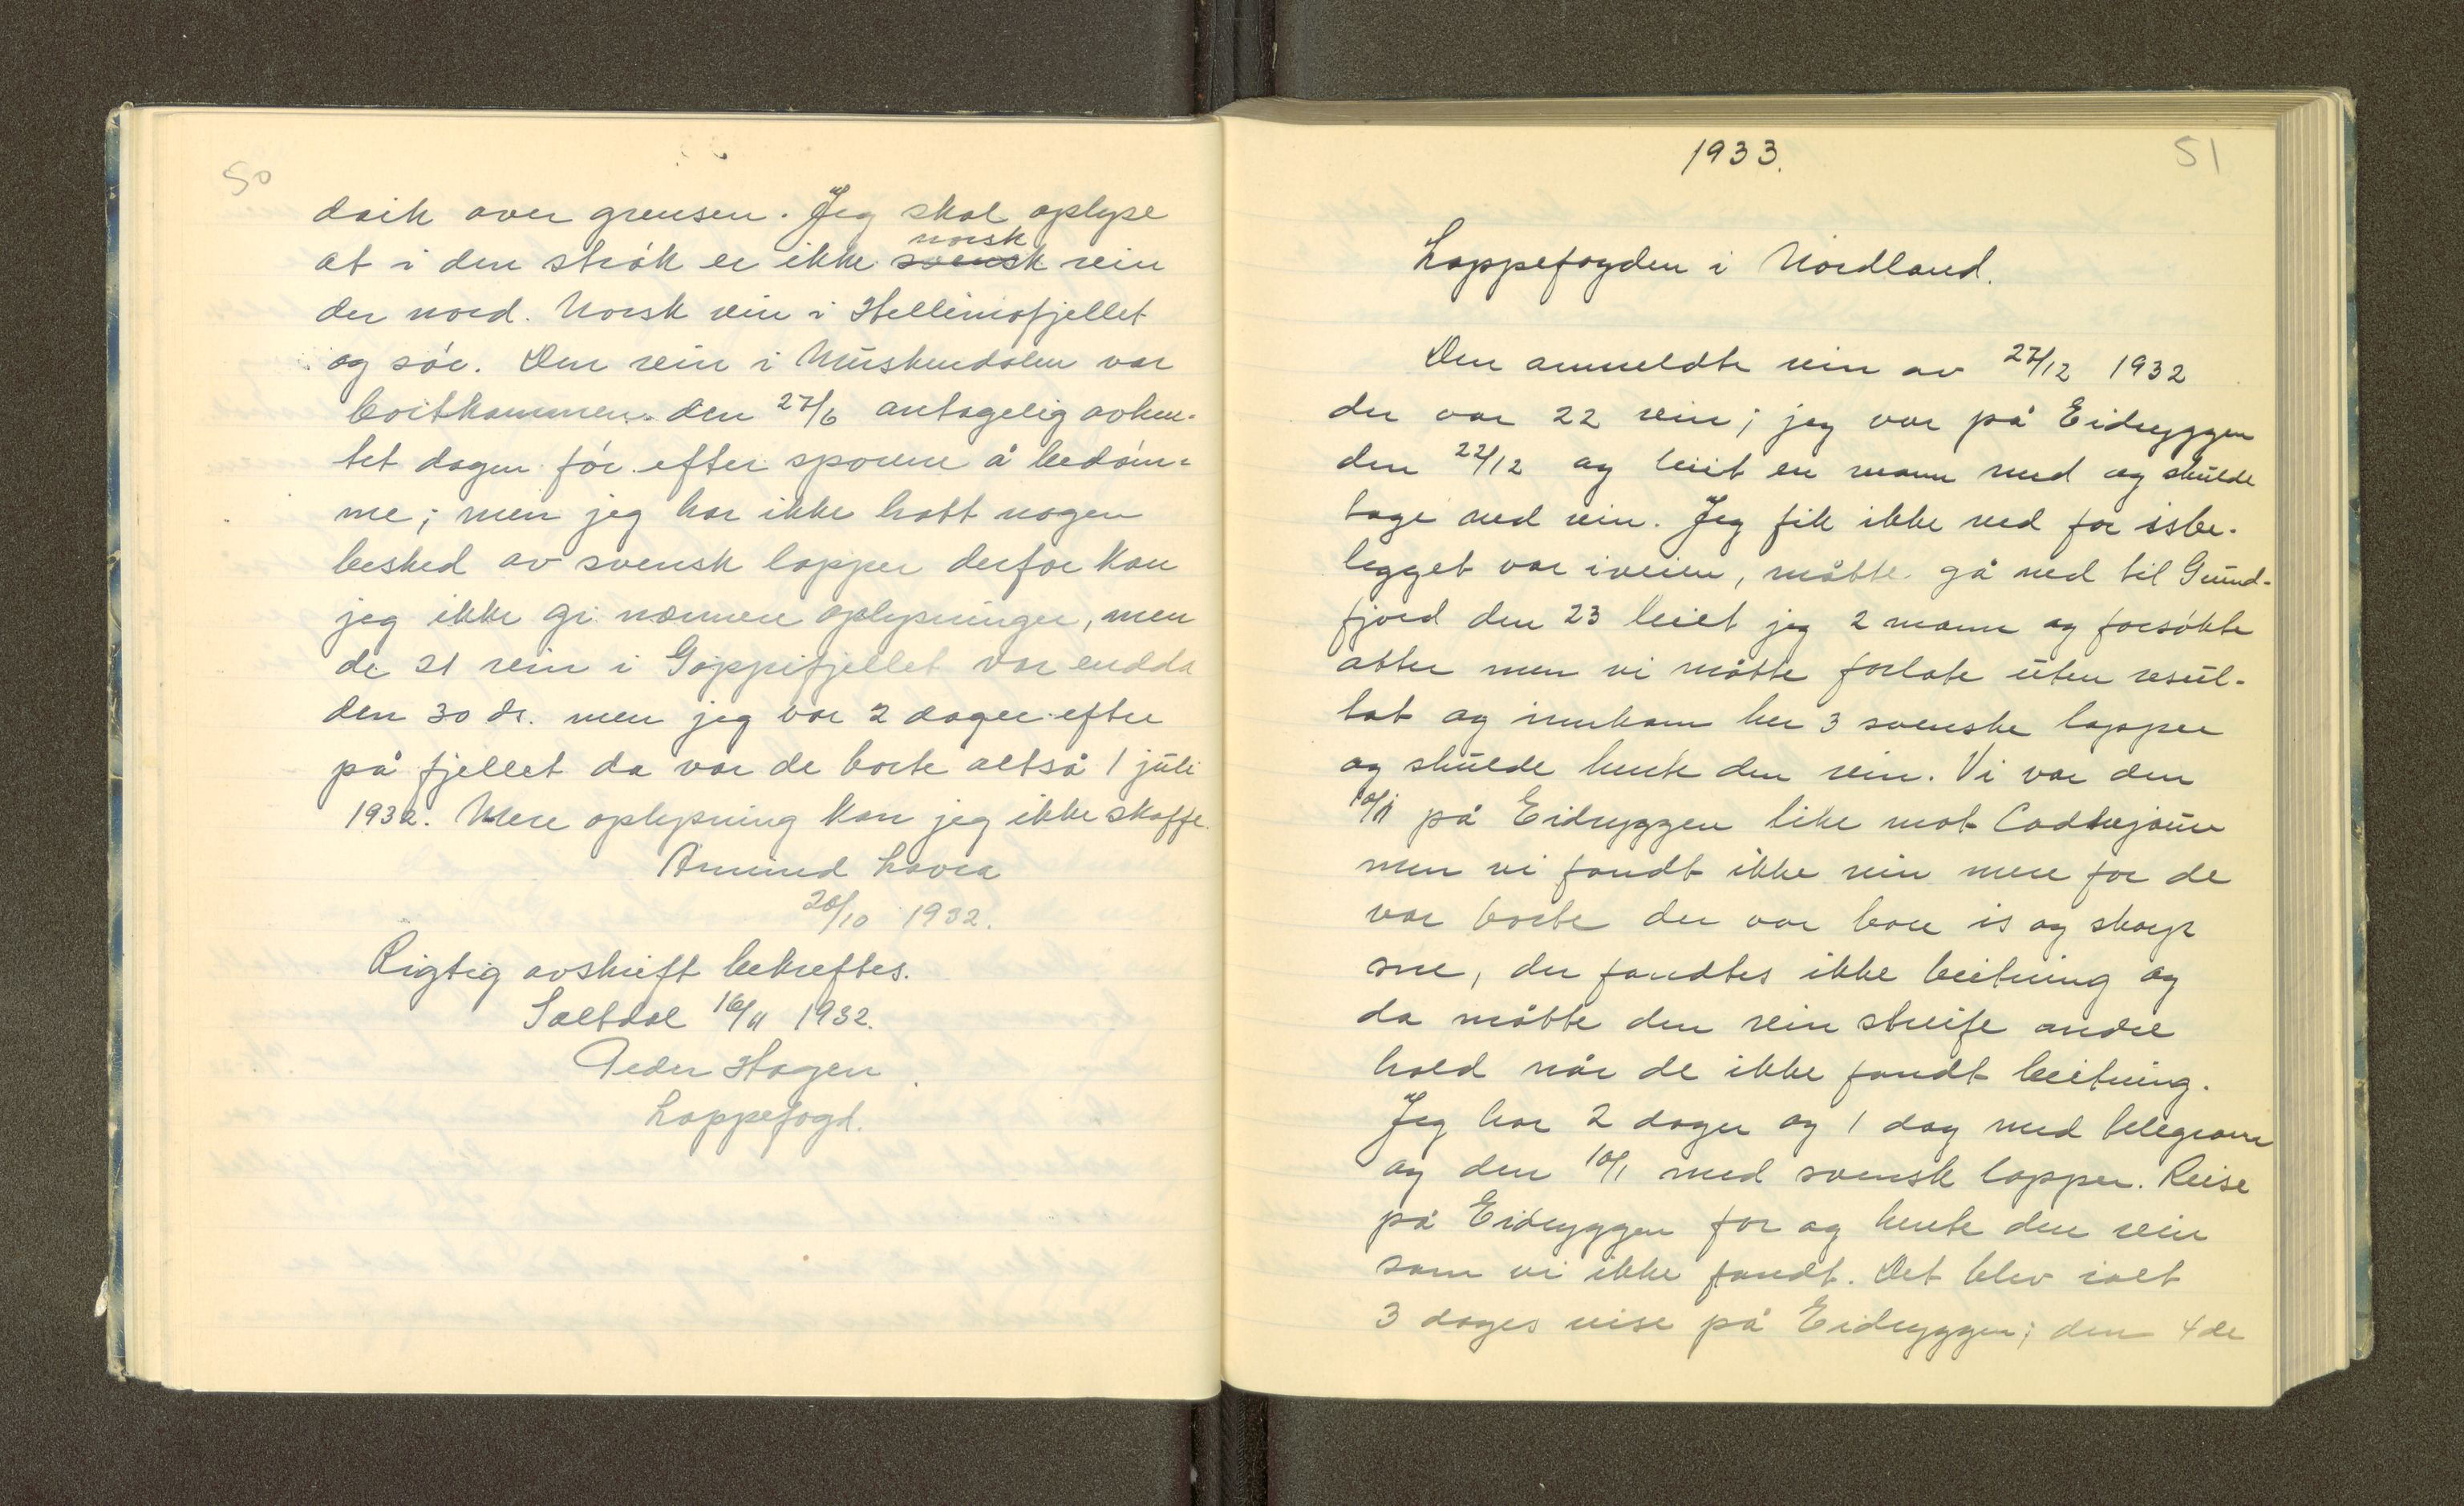 50
drik over grensen. Jeg skal oplyse
norsk
at i den strök er ikke svensk rein
der nord. Norsk rein i Hellemofjellet
og sör. Den rein i Muskendalen var
bortkommen den 27/6 antagelig avhen-
tet dagen för efter sporene å bedöm-
me; men jeg har ikke hatt nogen
besked av svensk lapper derfor kan
jeg ikke gi nærmere oplysninger, men
de 21 rein i Goppifjellet var endda
den 30 ds. men jeg var 2 dager efter
på fjellet da var de borte altså 1 juli
1932. Mere oplysning kan jeg ikke skaffe.
Amund Lavra
20/10 1932.
Rigtig avskrift bekreftes.
Saltdal 16/11 1932.
Peder Hagen
Lappefogd.
51
1933.
Lappefogden i Nordland.
Den anmeldte rein av 27/12 1932
der var 22 rein; jeg var på Eidryggen
den 22/12 og leiet en mann med og skulde
tage ned rein. Jeg fik ikke ned for isbe-
legget var iveien, måtte gå ned til Grund-
fjord den 23 leiet jeg 2 mann og forsökte
atter men vi måtte forlate uten resul-
tat og innkom her 3 svenske lapper
og skulde hente den rein. Vi var den
10/1 på Eidryggen like mot
men vi fandt ikke rein mere for de
var borte der var bare is og skarp
sne, der fandtes ikke beitning og
da måtte den rein streife andre
hold når de ikke fandt beitning.
Jeg har 2 dager og 1 dag med telegram
og den 10/1 med svensk lapper. Reise
på Eidryggen for og hente den rein
som vi ikke fandt. Det blev ialt
3 dages reise på Eidryggen; den 4de